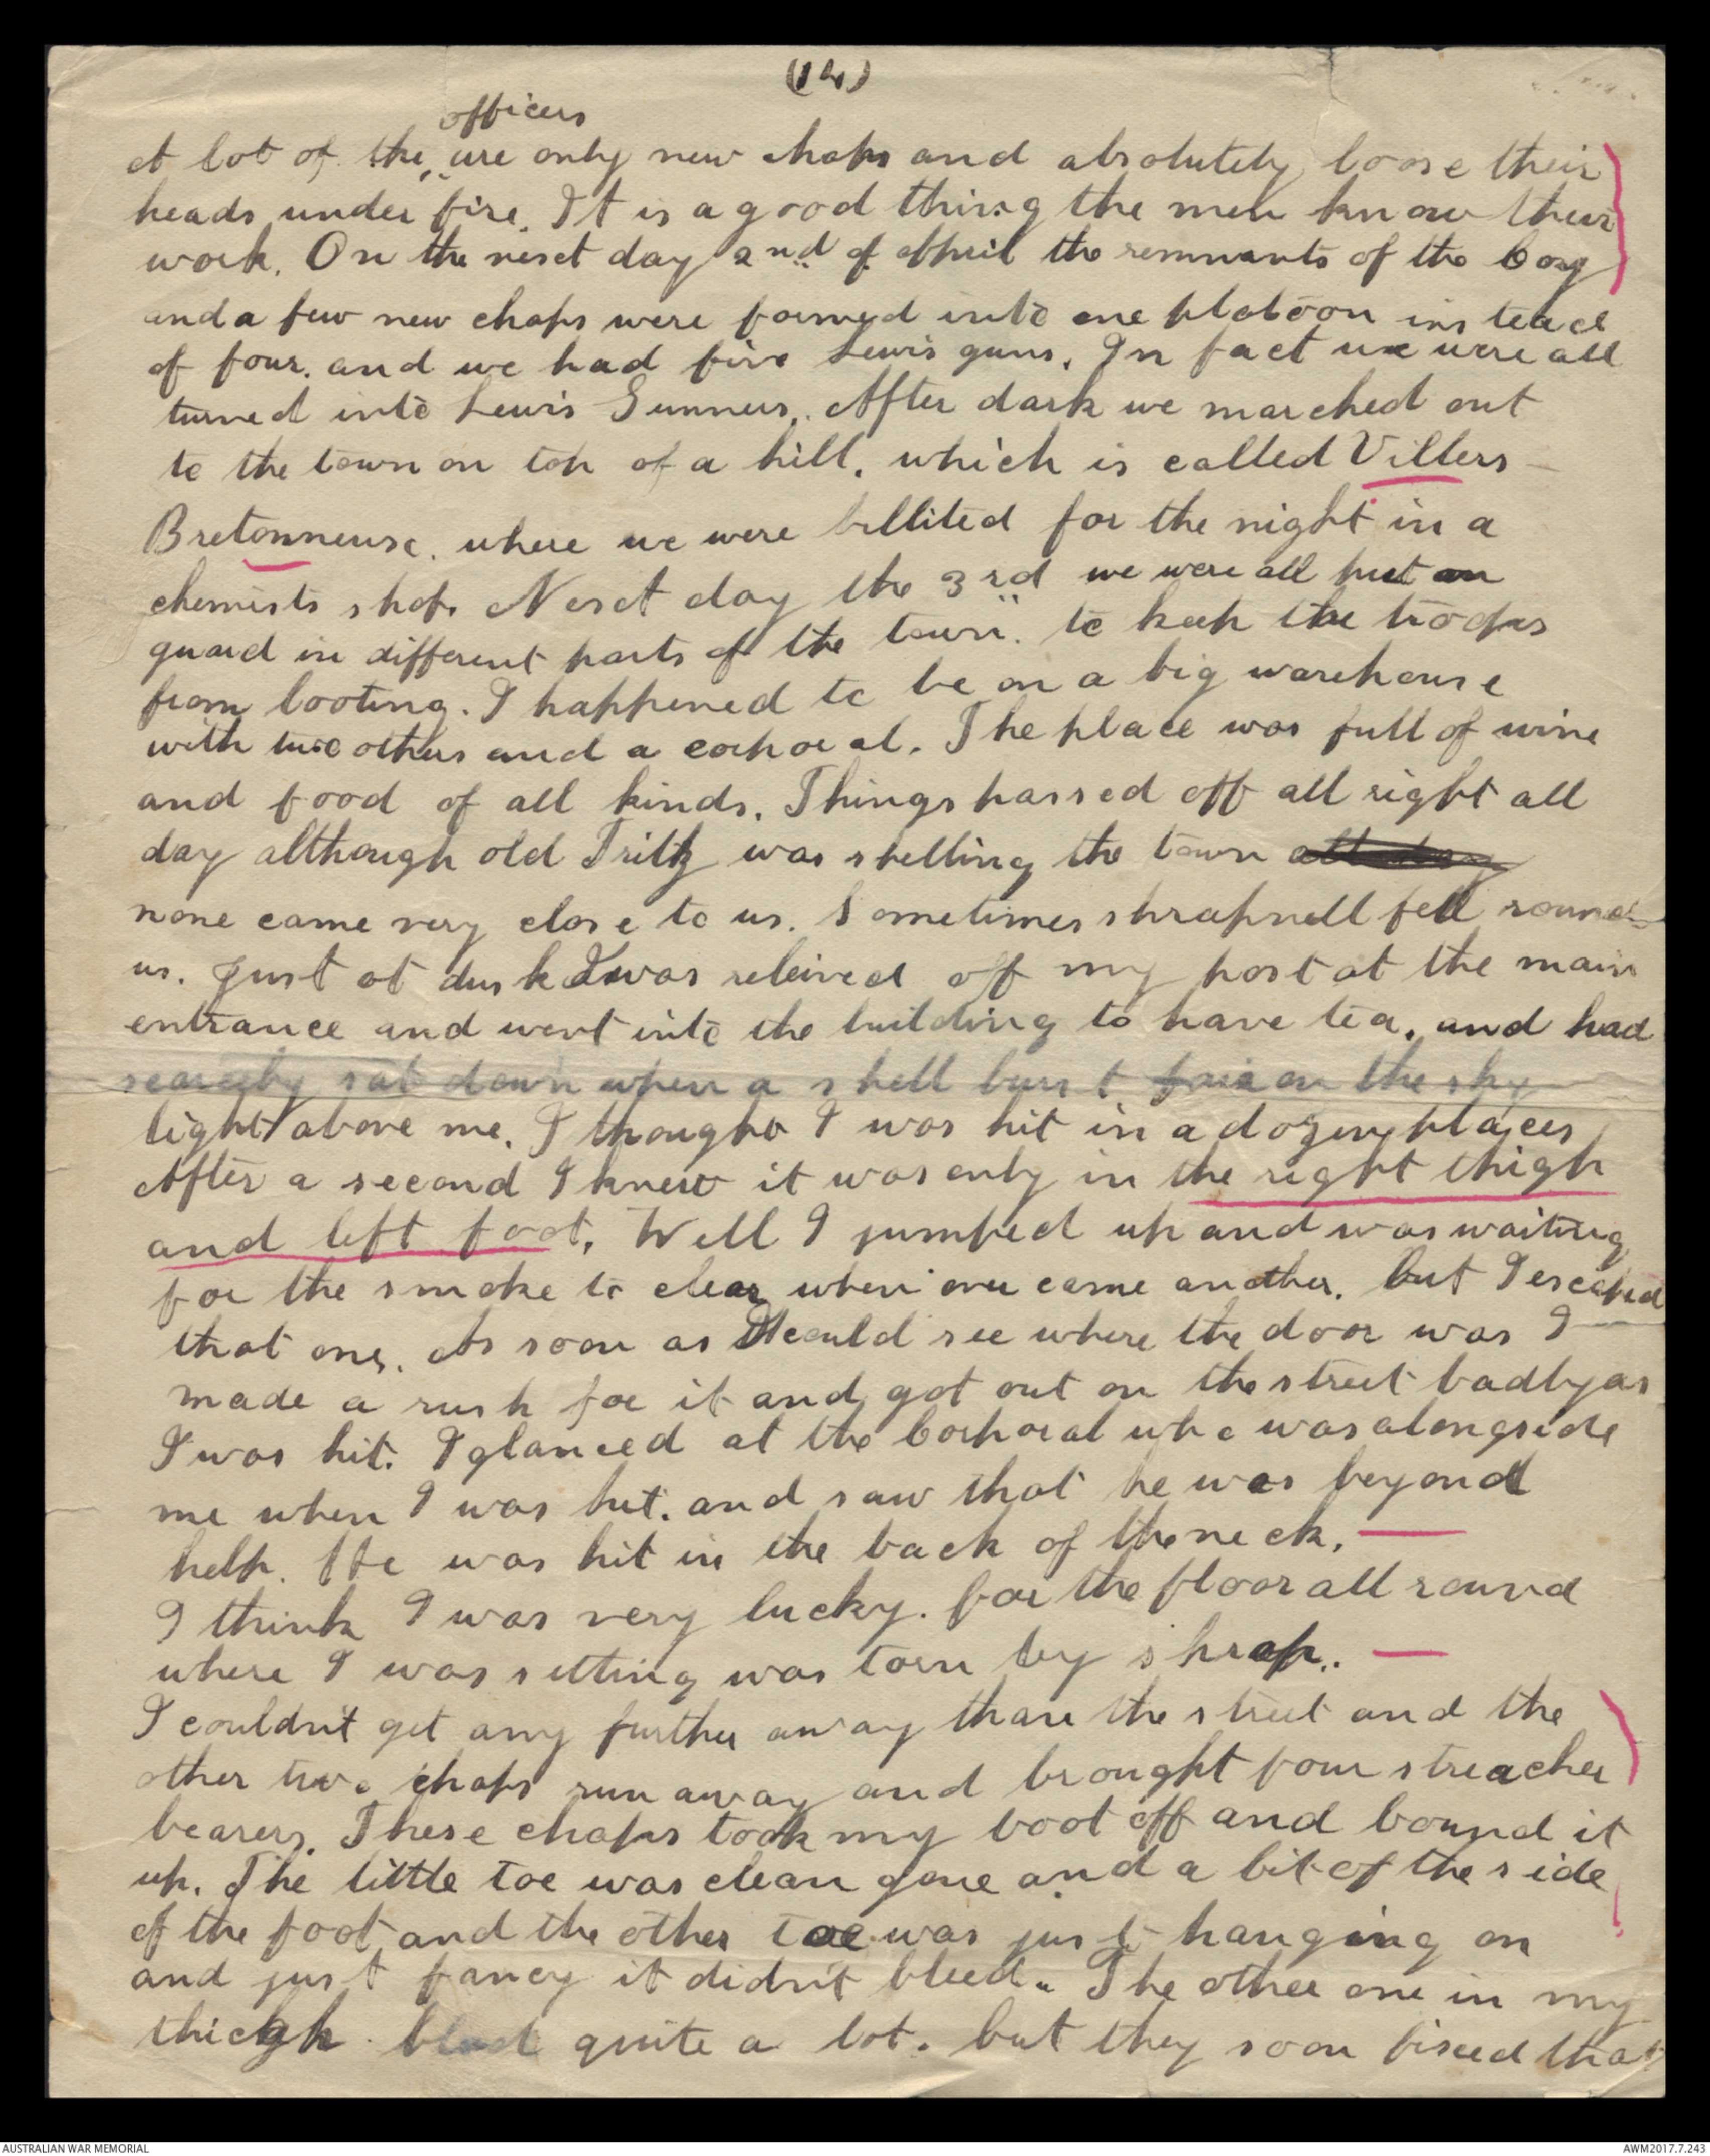 (14)
officers
A lot of the are only new chaps and absolutely loose their
heads under fire. It is a good thing the men know their
work. On the next day 2nd of April the remnants of the Coy
and a few new chaps were formed into one platoon instead
of four. and we had five Lewis guns. In fact we were all
turned into Lewis Gunners. After dark we marched out
to the town on top of a hill. which is called Villers -
Bretonneuse. where we were billited for the night in a
chemists shop. Next day the 3rd we were all put on
guard in different parts of the town. to keep the troops
from looting. I happened to be on a big warehouse
with two others and a corporal. The place was full of wine
and food of all kinds. Things passed off all right all
day although old Fritz was shelling the town all day
none came very close to us. Sometimes shrapnell fell round
us. Just at dusk I was releived off my post at the main
entrance and went into the building to have tea. and had
scarcely sat down when a shell burst fair on the sky
light above me. I thought I was hit in a dozen places
After a second I knew it was only in the right thigh
and left foot. Well I jumped up and was waiting
for the smoke to clear when over came another. but I escaped
that one. As soon as I could see where the door was I
made a rush for it and got out on the street badly as
I was hit. I glanced at the Corporal who was alongside
me when I was hit. and saw that he was beyond
help. He was hit in the back of the neck. —
I think I was very lucky. for the floor all round
where I was sitting was torn by shrap. —
I couldn't get any further away than the street and the
other two chaps run away and brought four streacher
bearers. These chaps took my boot off and bound it
up. The little toe was clean gone and a bit of the side
of the foot and the other toe was just hanging on
and just fancy it didn't bleed. The other one in my
thicgh bled quite a lot. but they soon fixed that
AUSTRALIAN WAR MEMORIAL
AWM2017.7.243